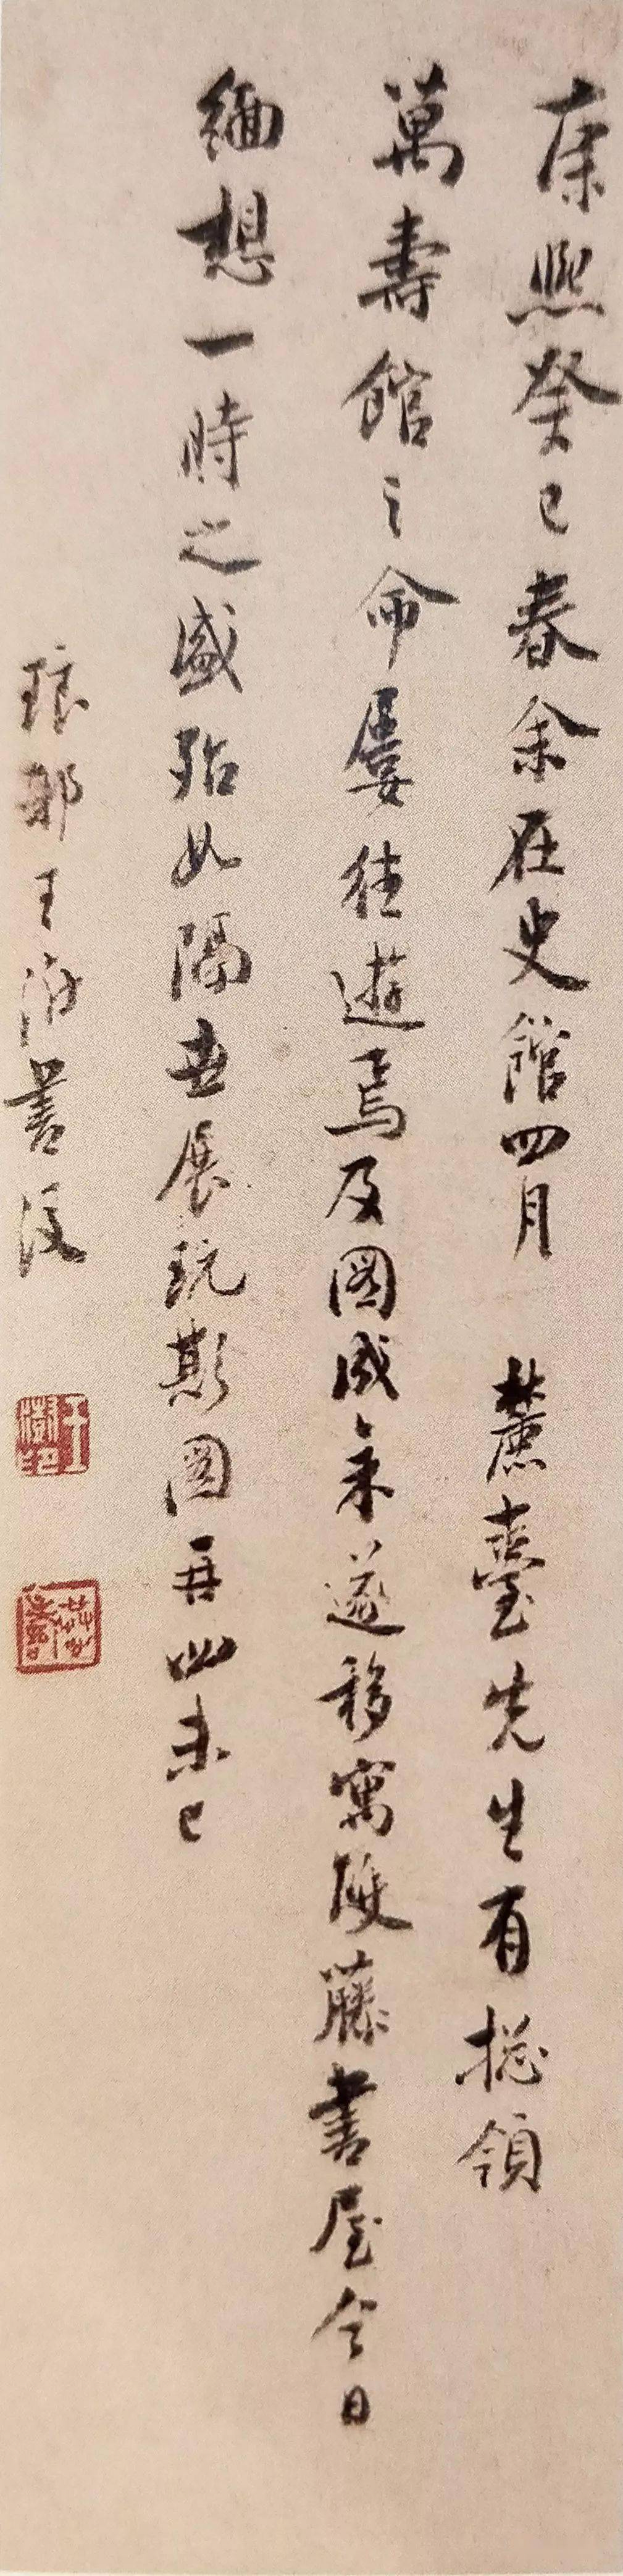 康熙癸巳春余在史館四月 麓臺先生有捴領
萬壽館之命屢往遊焉及圖成余遂移寓雙藤書屋今日
緬想一時之盛殆如隔世展玩斯圖吾
未已
琅邪王澍書後
王澍印